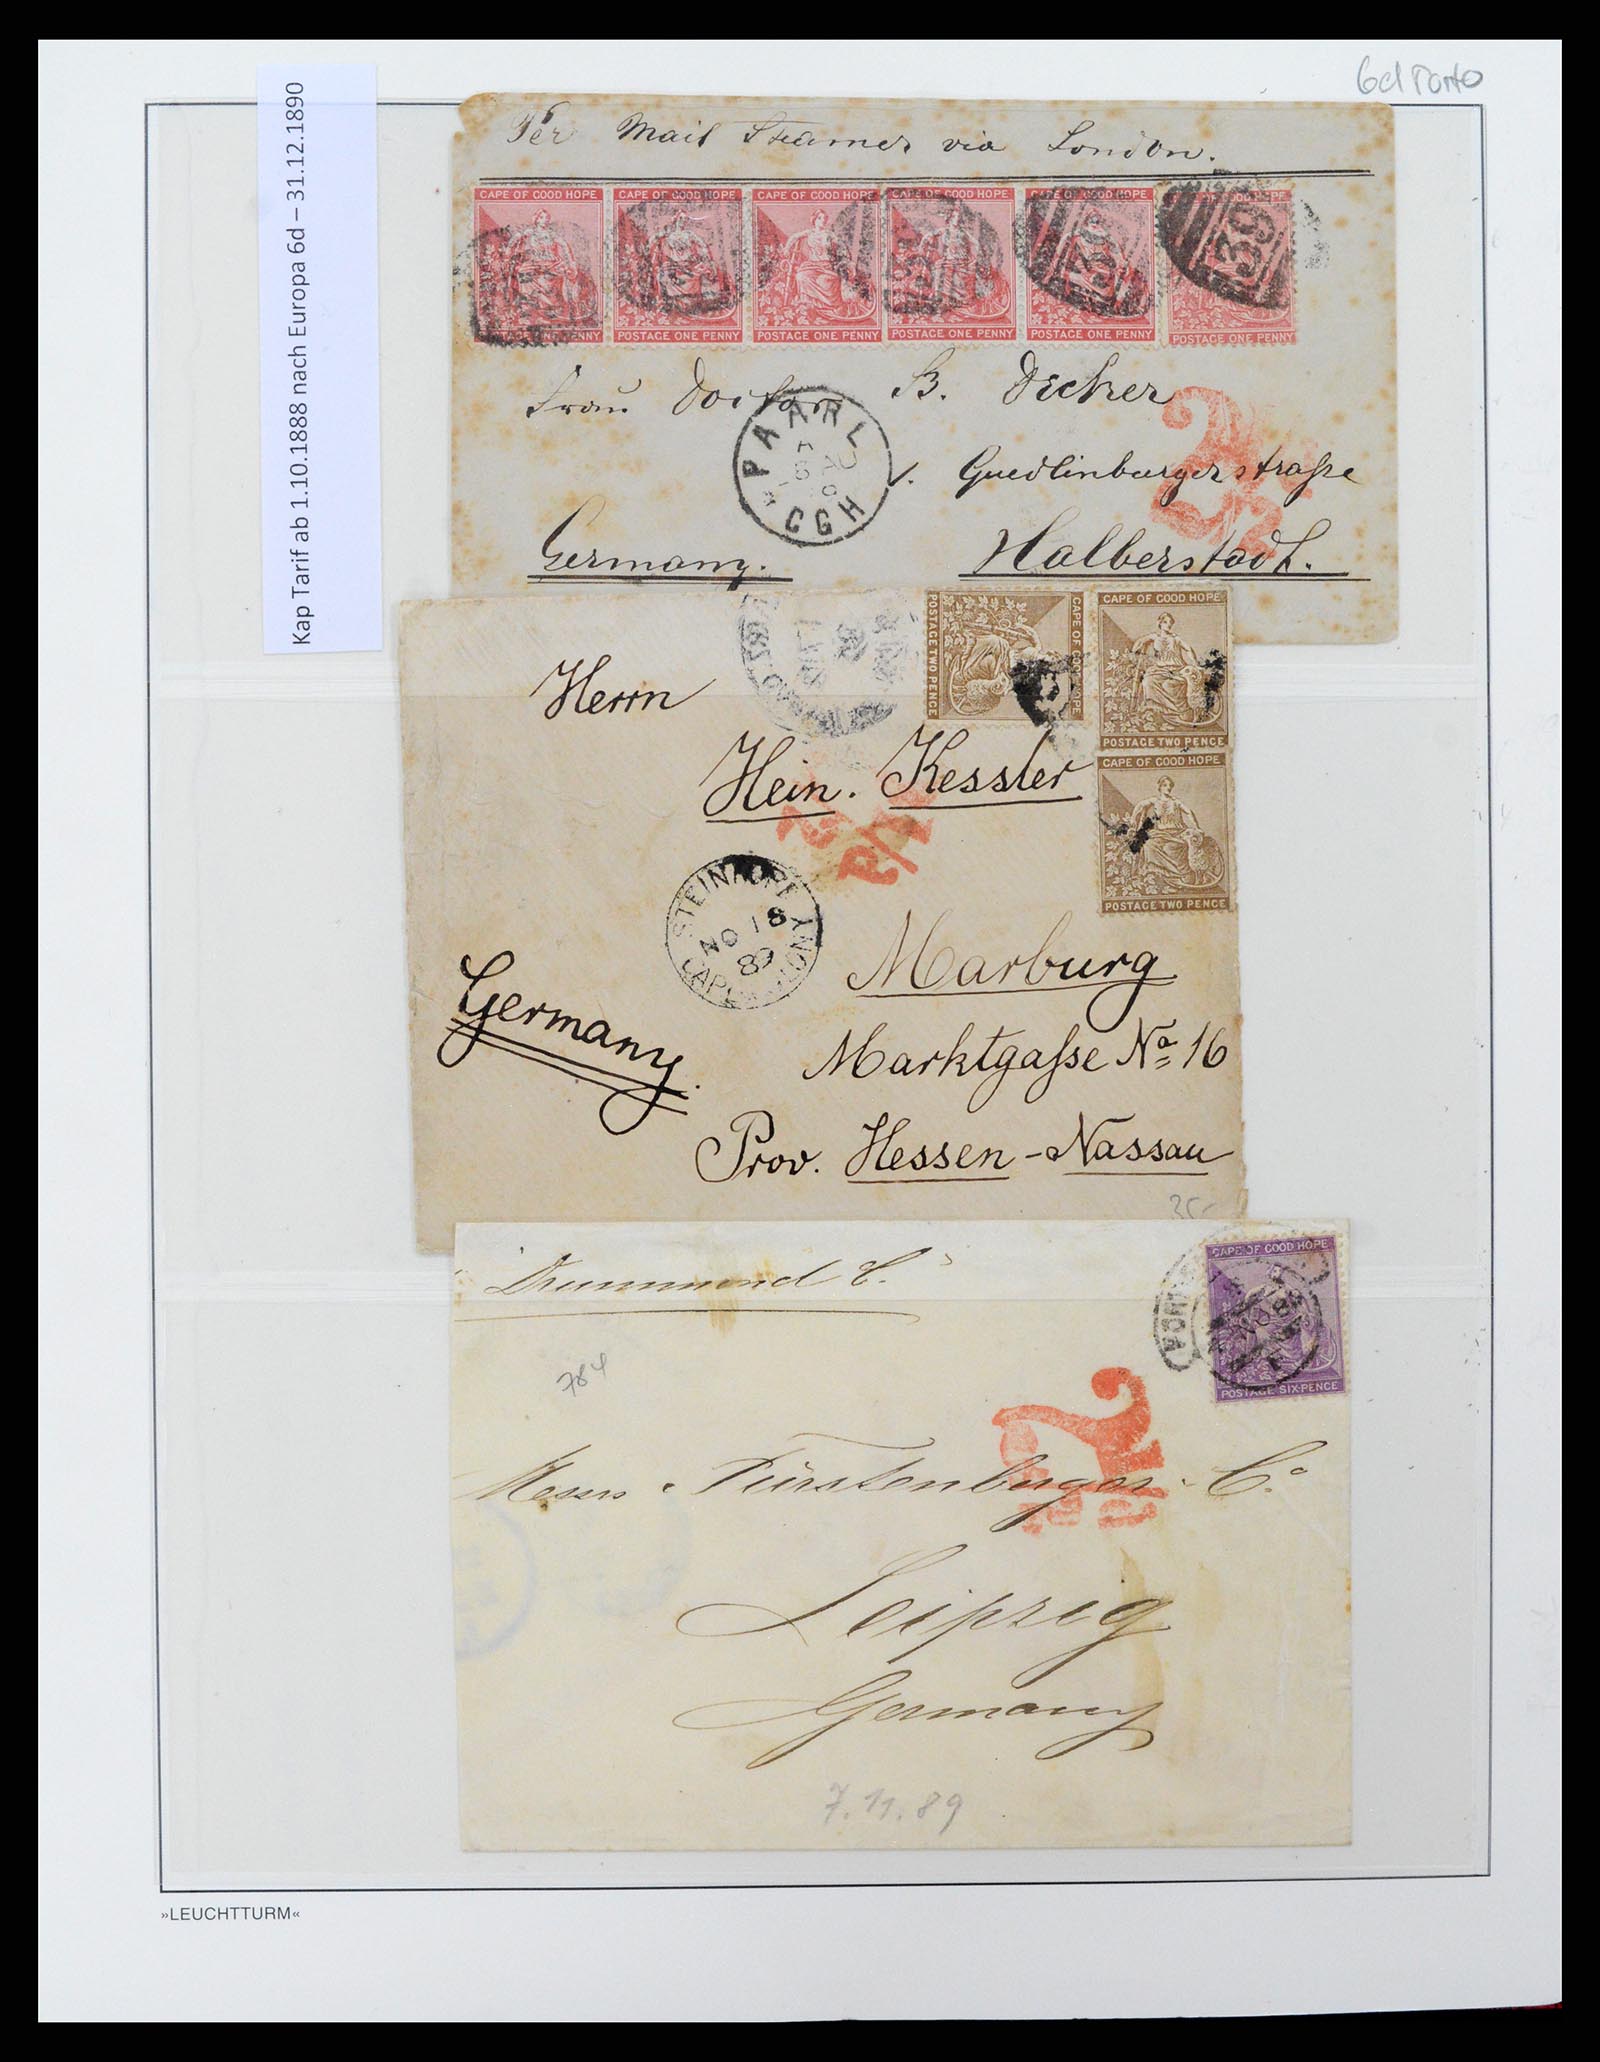 6d Porto
Kap Tarif ab 1.10.1888 nach Europa 6d – 31.12.1890
Per Mail Steamer via London.
CAPE OF GOOD HOPE CAPE OF GOOD HOPE CAPE OF GOOD HOPE CAPE OF GOOD HOPE CAPE OF GOOD HOPE OF GOOD HOPE
POSTAGE ONE PENNY POSTAGE ONE PENNY POSTAGE ONE PENNY POSTAGE ONE PENNY POSTAGE ONE PENNY
39
Frau Doctor B. Decker
PAARL
CGH
Quedlinburgerstraße
Germany. Halberstadt.
CAPE OF GOOD HOPE
POSTAGE TWO PENCE
CAPE OF GOOD HOPE
POSTAGE TWO PENCE
CAPE OF GOOD HOPE
POSTAGE TWO PENCE
Herrn
Hein. Kessler
NO 18
89
Marburg
Germany.
Marktgaße No 16
Prov. Hessen-Nassau
35-
"Drummond C."
CAPE OF GOOD HOPE
POSTAGE SIX-PENCE
784
Messrs Fürstenberger Co
Leipzig
Germany
7.11.89
»LEUCHTTURM«